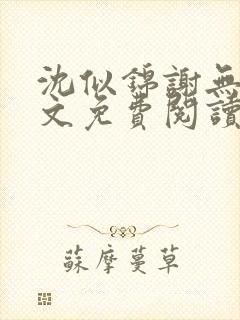 沈似錦謝無
文免費閱讀
蘇摩蔓草